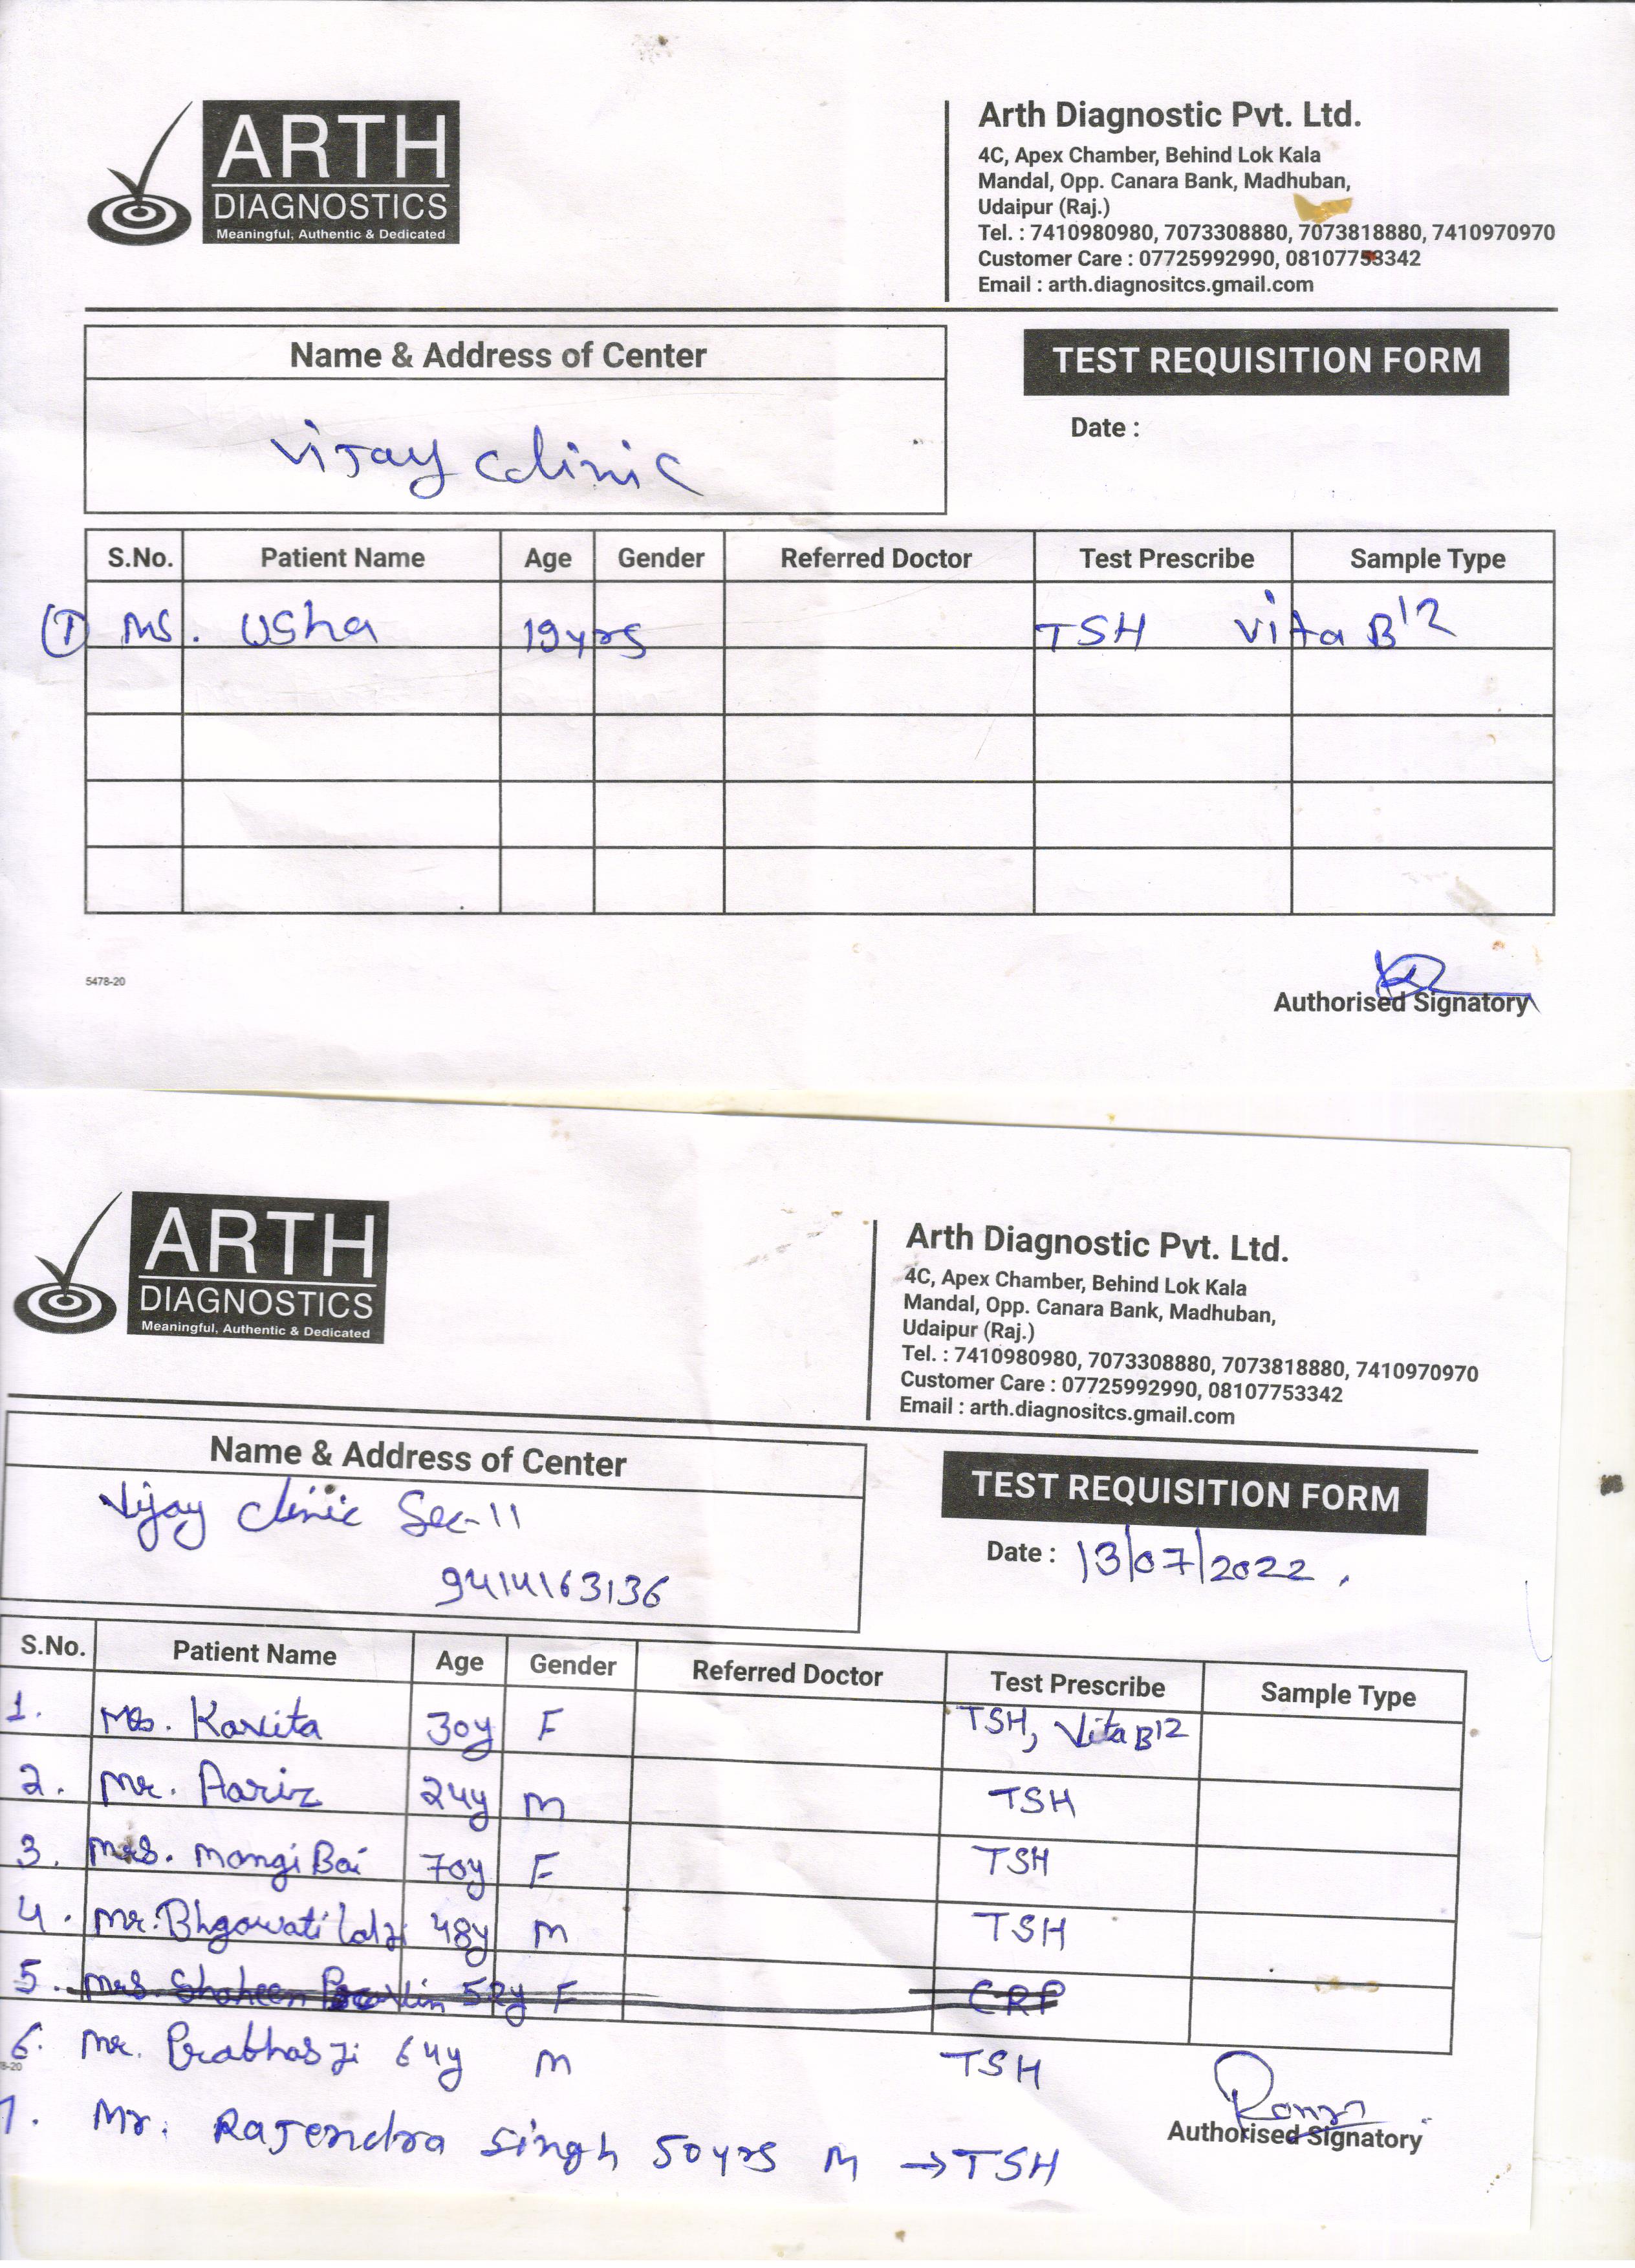 ARTH
DIAGNOSTICS
Meaningful, Authentic & Dedicated
Arth Diagnostic Pvt. Ltd.
4C, Apex Chamber, Behind Lok Kala
Mandal, Opp. Canara Bank, Madhuban,
Udaipur (Raj.)
Tel. : 7410980980, 7073308880, 7073818880, 7410970970
Customer Care : 07725992990, 08107753342
Email : arth.diagnositcs.gmail.com
Name & Address of Center
TEST REQUISITION FORM
Date :
Vijay Clinic
S.No. Patient Name Age Gender Referred Doctor Test Prescribe Sample Type
1 Ms. Usha 19yrs TSH Vita B12
5478-20
Authorised Signatory
ARTH
DIAGNOSTICS
Meaningful, Authentic & Dedicated
Arth Diagnostic Pvt. Ltd.
4C, Apex Chamber, Behind Lok Kala
Mandal, Opp. Canara Bank, Madhuban,
Udaipur (Raj.)
Tel. : 7410980980, 7073308880, 7073818880, 7410970970
Customer Care : 07725992990, 08107753342
Email : arth.diagnositcs.gmail.com
Name & Address of Center
Vijay Clinic Sec-11
9414163136
TEST REQUISITION FORM
Date : 13/07/2022
S.No. Patient Name Age Gender Referred Doctor Test Prescribe Sample Type
1. Kavita 30y F TSH, Vita B12
2. Mr. Aariz 24y M TSH
3. Mrs. Mangi Bai 70y F TSH
4. Mr. Bhgawati lalji 48y M TSH
5. Mrs. Shaheen 52y F CRP
6. Mr. Prabhas Ji 64y M TSH
8-20
7. Mr. Rajendra Singh 50yrs M → TSH
Authorised Signatory